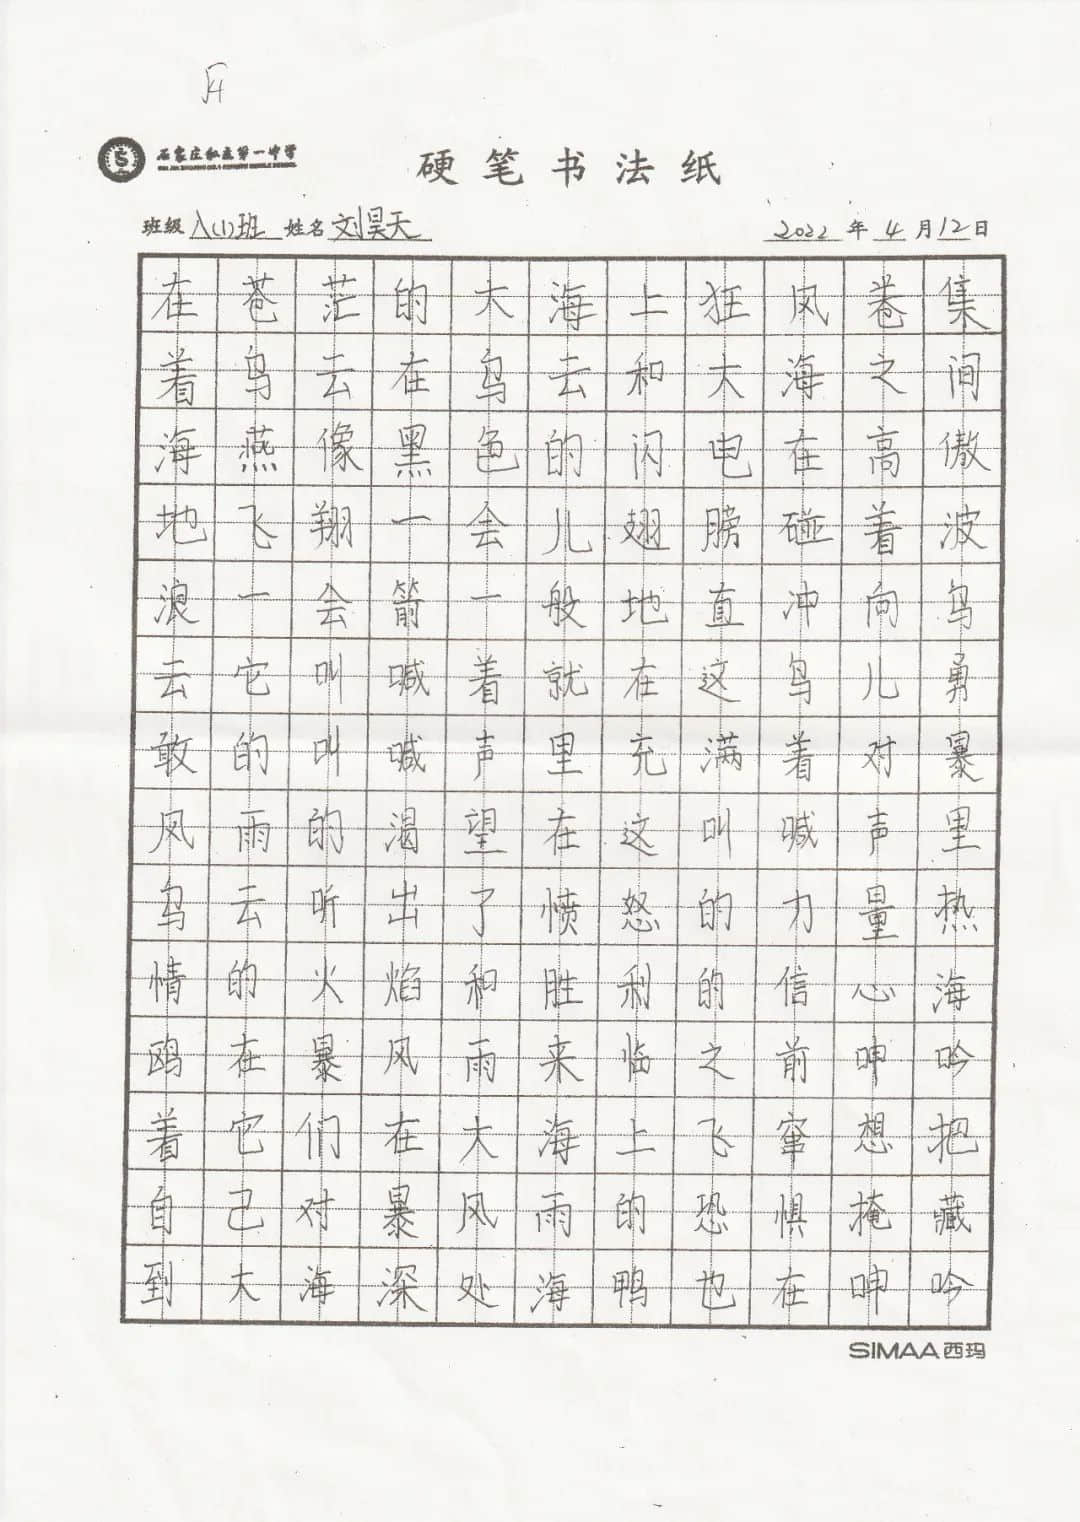 石家庄私立第一中学
硬笔书法纸
班级 八(1)班 姓名 刘昊天 2022 年 4 月 12 日
在苍茫的大海上狂风卷集
着乌云在乌云和大海之间
海燕像黑色的闪电在高傲
地飞翔一会儿翅膀碰着波
浪一会箭一般地直冲向乌
云它叫喊着就在这鸟儿勇
敢的叫喊声里充满着对暴
风雨的渴望在这叫喊声里
乌云听出了愤怒的力量热
情的火焰和胜利的信心海
鸥在暴风雨来临之前呻吟
着它们在大海上飞窜想把
自己对暴风雨的恐惧掩藏
到大海深处海鸭也在呻吟
SIMAA西玛